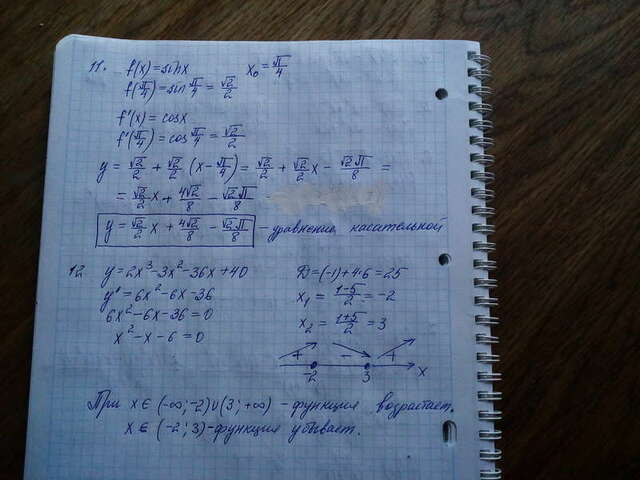 11. f(x)=sinx x₀=π/4
f(π/4)=sin π/4 = √2/2
f'(x)=cosx
f'(π/4)=cos π/4 = √2/2
y = √2/2 + √2/2 (x-π/4) = √2/2 + √2/2 x - √2π/8 =
= √2/2 x + 4√2/8 - √2π/8
y = √2/2 x + 4√2/8 - √2π/8 - уравнение касательной
12 y=2x³-3x²-36x+40 D=(-1)+4·6=25
y'=6x²-6x-36 x₁ = 1-5/2 = -2
6x²-6x-36=0 x₂ = 1+5/2 = 3
x²-x-6=0
+ - +
-2 3 x
При x∈(-∞;-2)∪(3;+∞) - функция возрастает.
x∈(-2;3)-функция убывает.